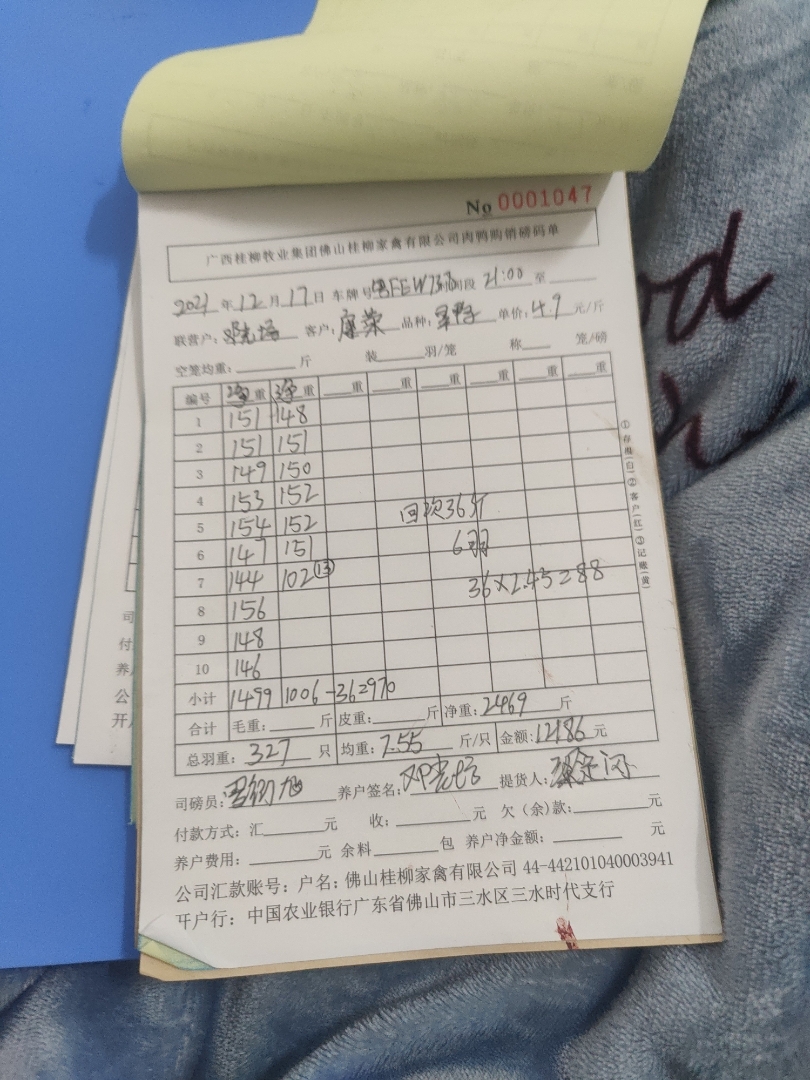 No 0001047
广西桂柳牧业集团佛山桂柳家禽有限公司肉鸭购销磅码单
2021 年 12 月 17 日 车牌号 时段 21:00 至
联营户: 客户: 康荣 品种: 单价: 4.9 元/斤
空笼均重: 斤 装 羽/笼 称 笼/磅
编号 净重 净重 重 重 重 重 重 重
1 151 148
2 151 151
3 149 150
4 153 152
5 154 152 回收36斤
6 147 151 6羽
7 144 102 ⑬ 36×2.45=88
8 156
9 148
10 146
小计 1499 1006-36=970
合计 毛重: 斤 皮重: 斤 净重: 2469 斤
总羽重: 327 只 均重: 7.55 斤/只 金额: 12186 元
司磅员: 养户签名: 提货人:
付款方式: 汇 元 收: 元 欠(余)款: 元
养户费用: 元 余料 包 养户净金额: 元
公司汇款账号: 户名: 佛山桂柳家禽有限公司 44-442101040003941
开户行: 中国农业银行广东省佛山市三水区三水时代支行
①存根(白)②客户(红)③记账(黄)
司
付
养
公
开